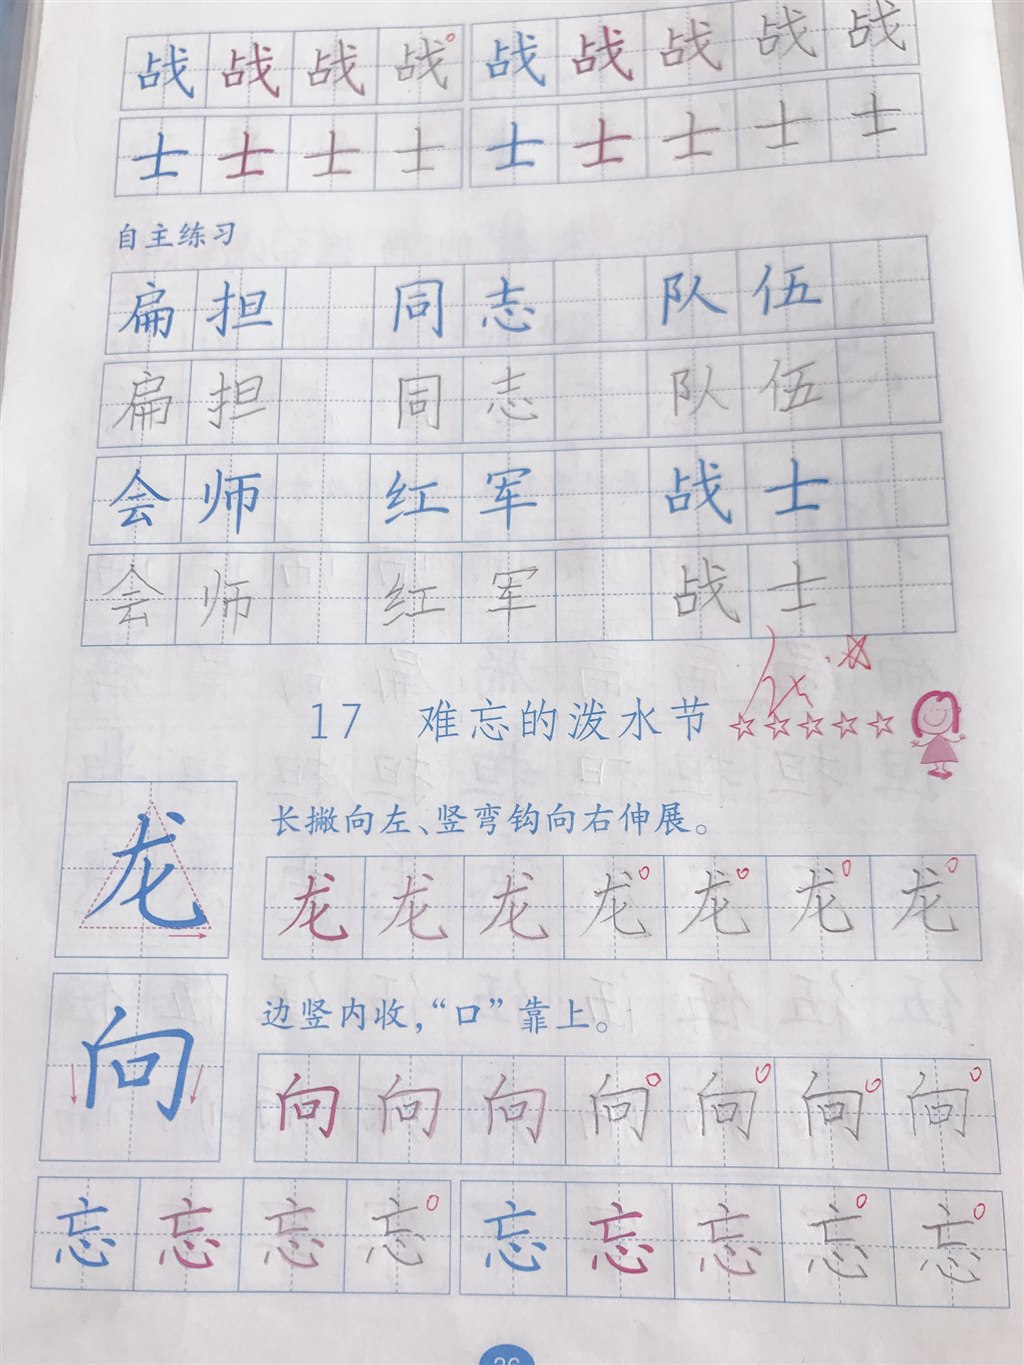 战战战战战战战战战
士士士士士士士士士
自主练习
扁担 同志 队伍
扁担 同志 队伍
会师 红军 战士
会师 红军 战士
17 难忘的泼水节
龙
长撇向左、竖弯钩向右伸展。
龙龙龙龙龙龙龙
向
边竖内收，“口”靠上。
向向向向向向向
忘忘忘忘忘忘忘忘忘